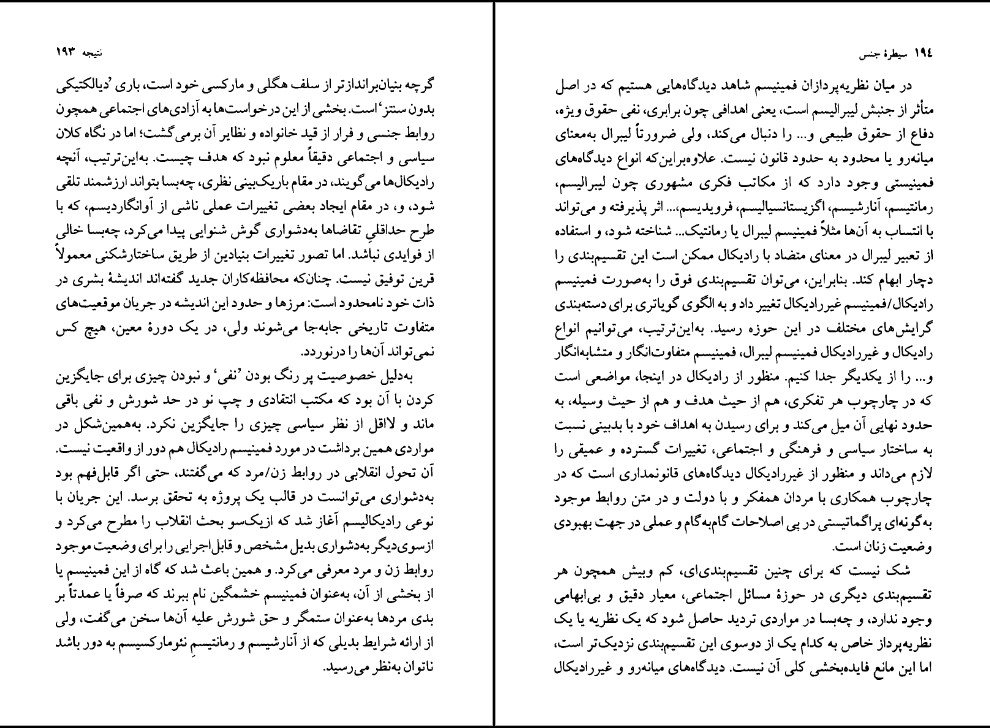 نتیجه ۱۹۳
گرچه بنیان‌براندازتر از سلف هگلی و مارکسی خود است، باری ’دیالکتیکی
بدون سنتز‘ است. بخشی از این درخواست‌ها به آزادی‌های اجتماعی همچون
روابط جنسی و فرار از قید خانواده و نظایر آن برمی‌گشت؛ اما در نگاه کلان
سیاسی و اجتماعی دقیقاً معلوم نبود که هدف چیست. به‌این‌ترتیب، آنچه
رادیکال‌ها می‌گویند، در مقام باریک‌بینی نظری، چه‌بسا بتواند ارزشمند تلقی
شود، و، در مقام ایجاد بعضی تغییرات عملی ناشی از آوانگاردیسم، که با
طرح حداقلیِ تقاضاها به‌دشواری گوش شنوایی پیدا می‌کرد، چه‌بسا خالی
از فوایدی نباشد. اما تصور تغییرات بنیادین از طریق ساختارشکنی معمولاً
قرین توفیق نیست. چنان‌که محافظه‌کاران جدید گفته‌اند اندیشهٔ بشری در
ذات خود نامحدود است: مرزها و حدود این اندیشه در جریان موقعیت‌های
متفاوت تاریخی جابه‌جا می‌شوند ولی، در یک دورهٔ معین، هیچ کس
نمی‌تواند آن‌ها را درنوردد.
به‌دلیل خصوصیت پر رنگ بودن ’نفی‘ و نبودن چیزی برای جایگزین
کردن با آن بود که مکتب انتقادی و چپ نو در حد شورش و نفی باقی
ماند و لااقل از نظر سیاسی چیزی را جایگزین نکرد. به‌همین‌شکل در
مواردی همین برداشت در مورد فمینیسم رادیکال هم دور از واقعیت نیست.
آن تحول انقلابی در روابط زن/مرد که می‌گفتند، حتی اگر قابل‌فهم بود
به‌دشواری می‌توانست در قالب یک پروژه به تحقق برسد. این جریان با
نوعی رادیکالیسم آغاز شد که ازیک‌سو بحث انقلاب را مطرح می‌کرد و
ازسوی‌دیگر به‌دشواری بدیل مشخص و قابل‌اجرایی را برای وضعیت موجود
روابط زن و مرد معرفی می‌کرد. و همین باعث شد که گاه از این فمینیسم یا
از بخشی از آن، به‌عنوان فمینیسم خشمگین نام ببرند که صرفاً یا عمدتاً بر
بدی مردها به‌عنوان ستمگر و حق شورش علیه آن‌ها سخن می‌گفت، ولی
از ارائه شرایط بدیلی که از آنارشیسم و رمانتیسمِ نئومارکسیسم به دور باشد
ناتوان به‌نظر می‌رسید.
۱۹۴ سیطرهٔ جنس
در میان نظریه‌پردازان فمینیسم شاهد دیدگاه‌هایی هستیم که در اصل
متأثر از جنبش لیبرالیسم است، یعنی اهدافی چون برابری، نفی حقوق ویژه،
دفاع از حقوق طبیعی و... را دنبال می‌کند، ولی ضرورتاً لیبرال به‌معنای
میانه‌رو یا محدود به حدود قانون نیست. علاوه‌براین‌که انواع دیدگاه‌های
فمینیستی وجود دارد که از مکاتب فکری مشهوری چون لیبرالیسم،
رمانتیسم، آنارشیسم، اگزیستانسیالیسم، فرویدیسم،... اثر پذیرفته و می‌تواند
با انتساب به آن‌ها مثلاً فمینیسم لیبرال یا رمانتیک... شناخته شود، و استفاده
از تعبیر لیبرال در معنای متضاد با رادیکال ممکن است این تقسیم‌بندی را
دچار ابهام کند. بنابراین، می‌توان تقسیم‌بندی فوق را به‌صورت فمینیسم
رادیکال/فمینیسم غیررادیکال تغییر داد و به الگوی گویاتری برای دسته‌بندی
گرایش‌های مختلف در این حوزه رسید. به‌این‌ترتیب، می‌توانیم انواع
رادیکال و غیررادیکال فمینیسم لیبرال، فمینیسم متفاوت‌انگار و متشابه‌انگار
و... را از یکدیگر جدا کنیم. منظور از رادیکال در اینجا، مواضعی است
که در چارچوب هر تفکری، هم از حیث هدف و هم از حیث وسیله، به
حدود نهایی آن میل می‌کند و برای رسیدن به اهداف خود با بدبینی نسبت
به ساختار سیاسی و فرهنگی و اجتماعی، تغییرات گسترده و عمیقی را
لازم می‌داند و منظور از غیررادیکال دیدگاه‌های قانونمداری است که در
چارچوب همکاری با مردان همفکر و با دولت و در متن روابط موجود
به‌گونه‌ای پراگماتیستی در پی اصلاحات گام‌به‌گام و عملی در جهت بهبودی
وضعیت زنان است.
شک نیست که برای چنین تقسیم‌بندی‌ای، کم وبیش همچون هر
تقسیم‌بندی دیگری در حوزهٔ مسائل اجتماعی، معیار دقیق و بی‌ابهامی
وجود ندارد، و چه‌بسا در مواردی تردید حاصل شود که یک نظریه یا یک
نظریه‌پرداز خاص به کدام یک از دوسوی این تقسیم‌بندی نزدیک‌تر است،
اما این مانع فایده‌بخشی کلی آن نیست. دیدگاه‌های میانه‌رو و غیررادیکال